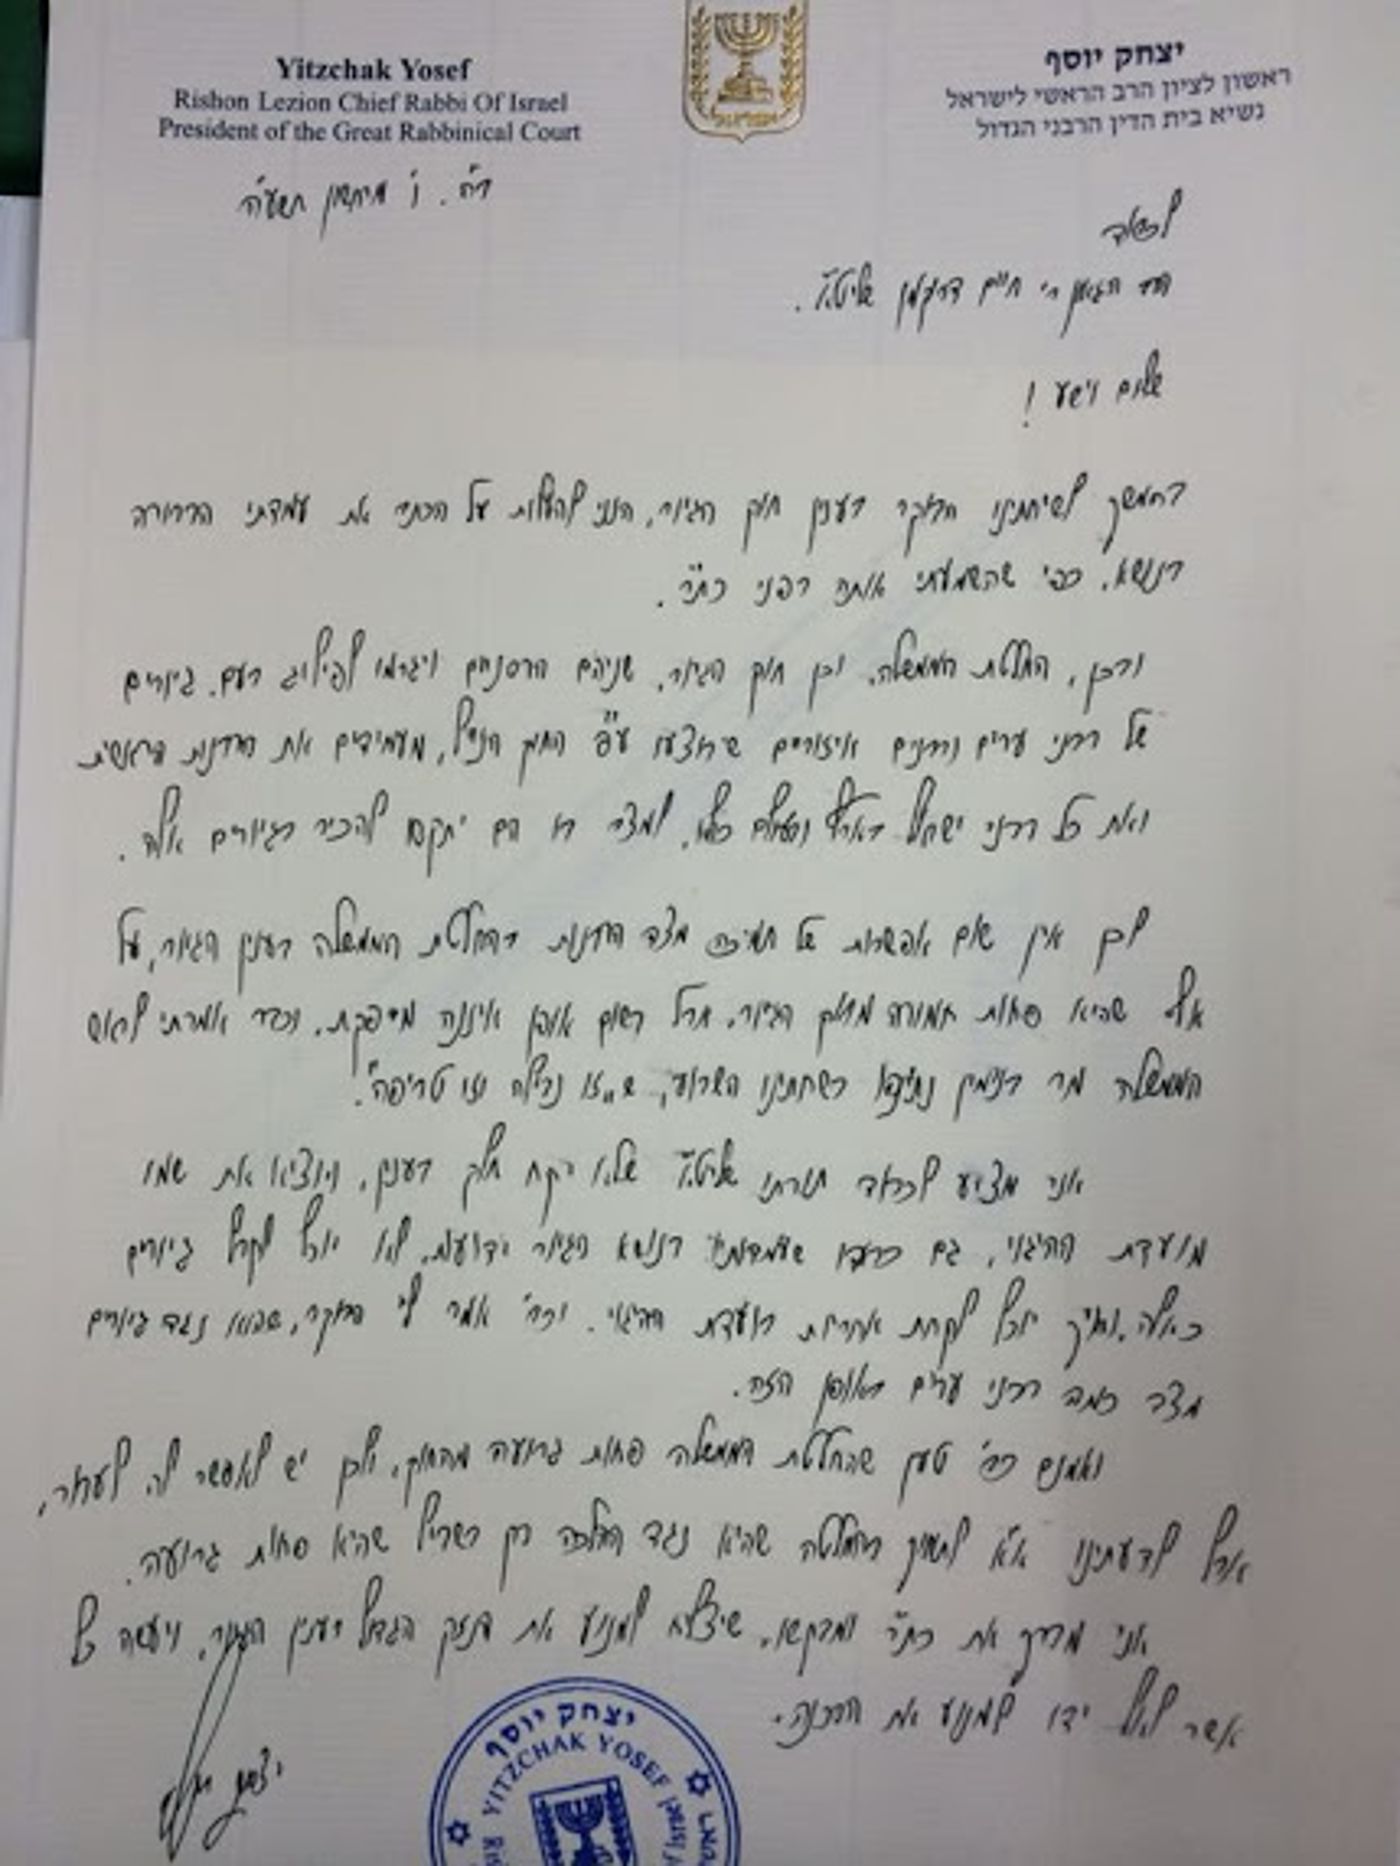 Yitzchak Yosef
Rishon Lezion Chief Rabbi Of Israel
President of the Great Rabbinical Court
יצחק יוסף
ראשון לציון הרב הראשי לישראל
נשיא בית הדין הרבני הגדול
ב"ה. ו' מרחשון תשע"ה
לכבוד
הרב הגאון ר' חיים דרוקמן שליט"א.
שלום וישע!
בהמשך לשיחתינו הבוקר בענין חוק הגיור, הנני להעלות על הכתב את עמדתי הברורה
בנושא, כפי שהשמעתי אותה בפני כת"ר.
ובכן, החלטת הממשלה, וכן חוק הגיור, שניהם הרסניים ויגרמו לפילוג בעם. גיורים
של רבני ערים ורבנים איזוריים שיבוצעו ע"פ החוק הנ"ל, מעמידים את הרבנות הראשית
ואת כל רבני ישראל בארץ ובעולם כולו, למצב בו הם יתקשו להכיר בגיורים אלה.
לכן אין שום אפשרות של תמיכה מצד הרבנות בהחלטת הממשלה בענין הגיור, על
אף שהיא פחות חמורה מחוק הגיור, אבל בשום אופן איננה מספקת. וכבר אמרתי לראש
הממשלה מר בנימין נתניהו בשיחתינו השבוע, ש"זו נבילה וזו טריפה".
אני מציע לכבוד תורתו שליט"א שלא יקח חלק בענין, ויוציא את שמו
מועדת ההיגוי, גם כבודו שעמדותיו בנושא הגיור ידועות, לא יוכל לקבל גיורים
כאלה, ואיך יוכל לקחת אחריות בועדת ההיגוי. וכת' אמר לי הבוקר, שהוא נגד גיורים
מצד כמה רבני ערים באופן הזה.
ואמנם כת' טוען שהחלטת הממשלה פחות גרועה מהחוק, ולכן יש לאפשר לה לעבור,
אבל לדעתינו א"א לתמוך בהחלטה שהיא נגד ההלכה רק בשביל שהיא פחות גרועה.
אני מברך את כת"ר ומבקשו, שיצליח למנוע את הנזק הגדול בענין הגיור, ויעשה כל
אשר לאל ידו למנוע את הדבר.
יצחק יוסף
יצחק יוסף
YITZCHAK YOSEF